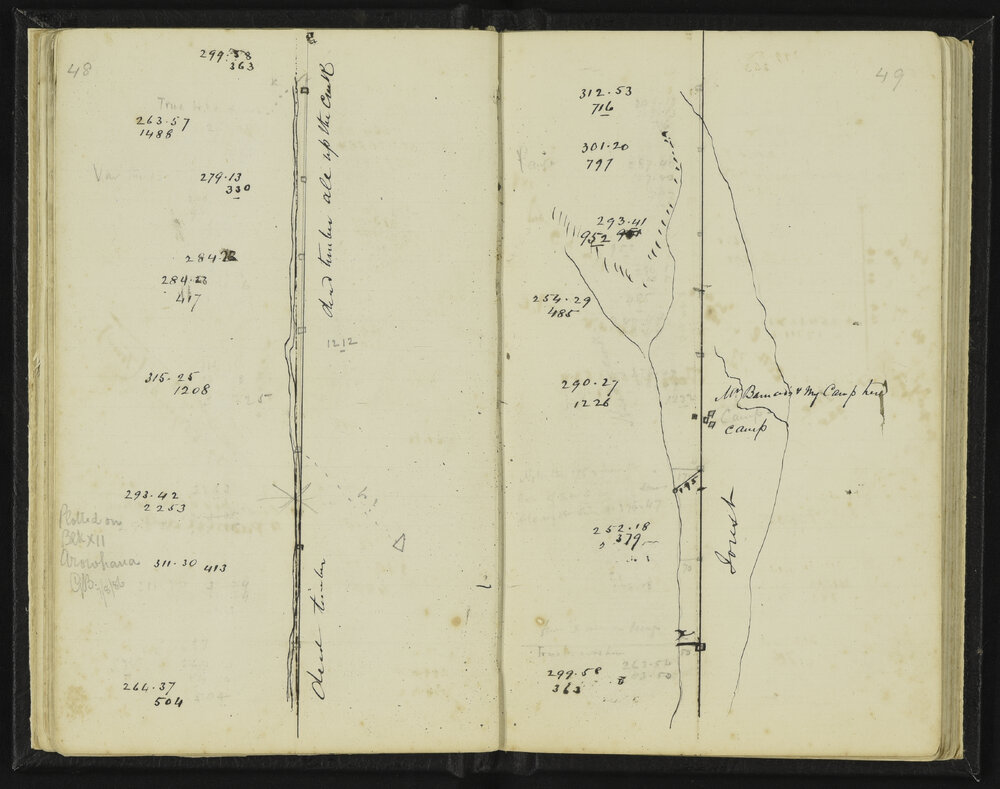 48
299·58
363
263·57
1488
279·13
330
284
284·28
417
dead timber all up the Creek
1212
315·25
1208
293·42
2253
Plotted on
Blk XII
311·30 413
dead timber
264·37
504
49
312·53
716
301·20
797
293·41
952
254·29
485
290·27
1226
Mr Barnard's & My Camp here
Camp
camp
195
Forest
252·18
379
299·58
363